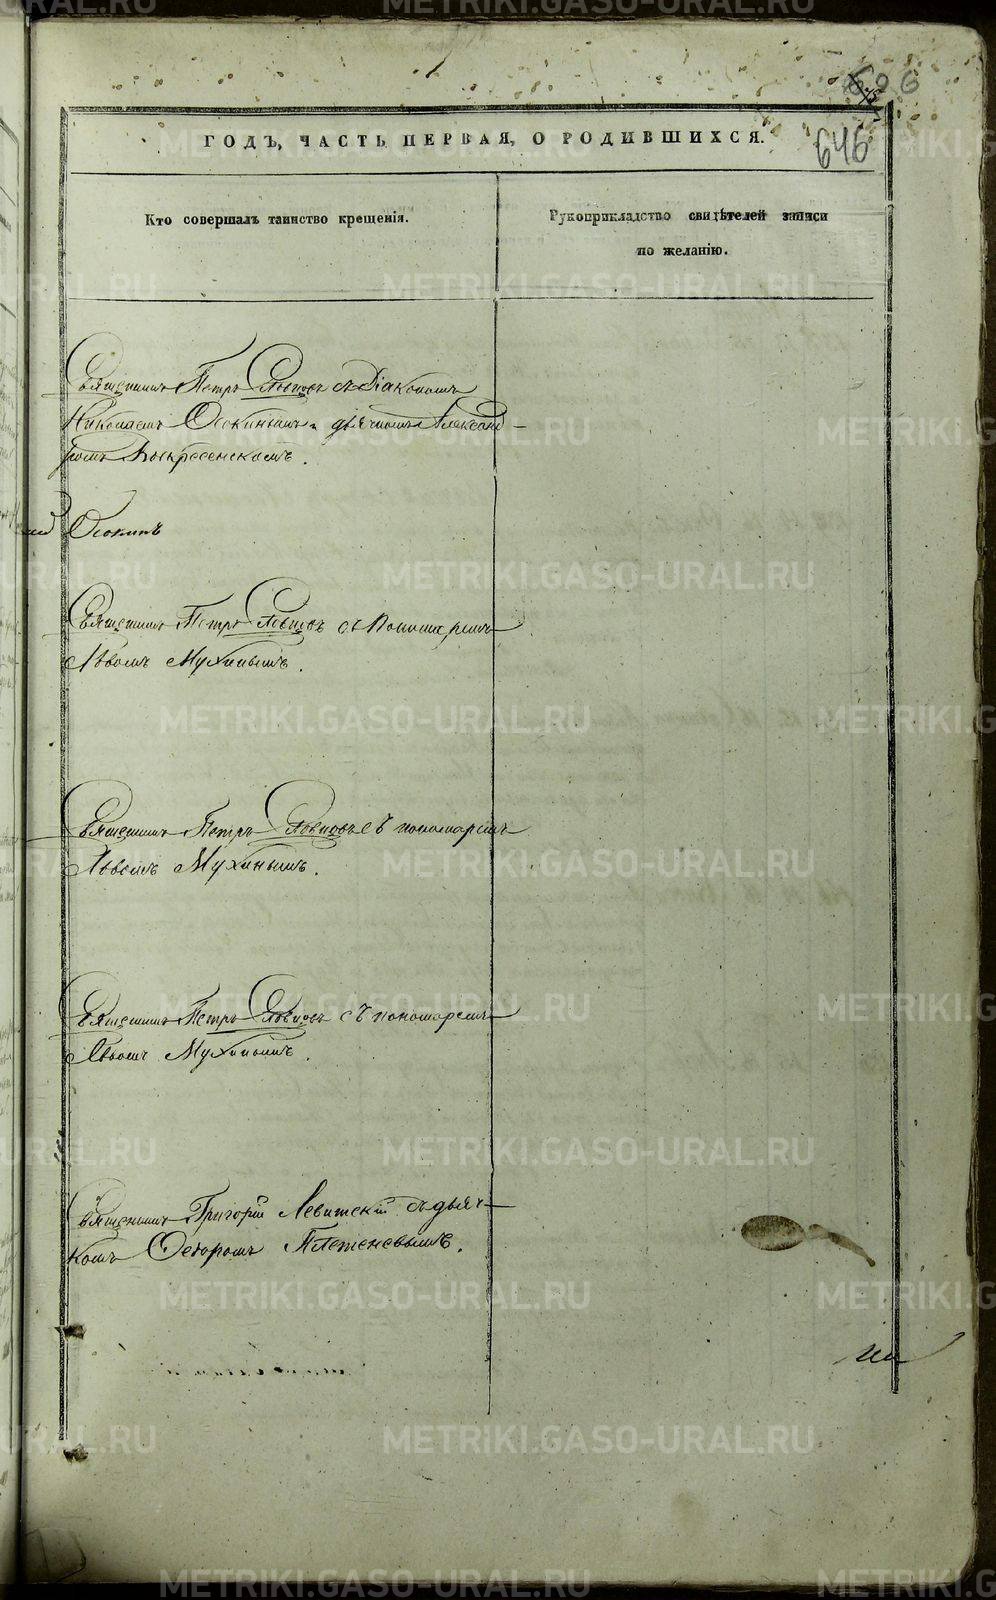 606
646
ГОДЪ, ЧАСТЬ ПЕРВАЯ, О РОДИВШИХСЯ.
Кто совершалъ таинство крещенія.
Рукоприкладство свидѣтелей записи
по желанію.
Священникъ Петръ Словцовъ съ Діакономъ
Николаемъ Осокинымъ и дьячкомъ Александ-
ромъ Воскресенскимъ.
Осокинъ
Священникъ Петръ Словцовъ съ Пономаремъ
Львомъ Мухинымъ.
Священникъ Петръ Словцовъ съ пономаремъ
Львомъ Мухинымъ.
Священникъ Петръ Словцовъ съ пономаремъ
Львомъ Мухинымъ.
Священникъ Григорій Левитскій съ дьяч-
комъ Ѳедоромъ Плетеневымъ.
METRIKI.GASO-URAL.RU